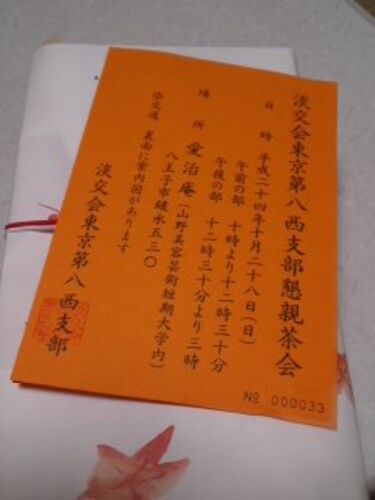 淡交会東京第八西支部懇親茶会
日時 平成二十四年十月二十八日(日)
午前の部 十時より十二時三十分
午後の部 十二時三十分より三時
場所 愛治庵(山野美容芸術短期大学内)
八王子市鑓水五三〇
☆交通 裏面に案内図があります
淡交会東京第八西支部
№ 000033